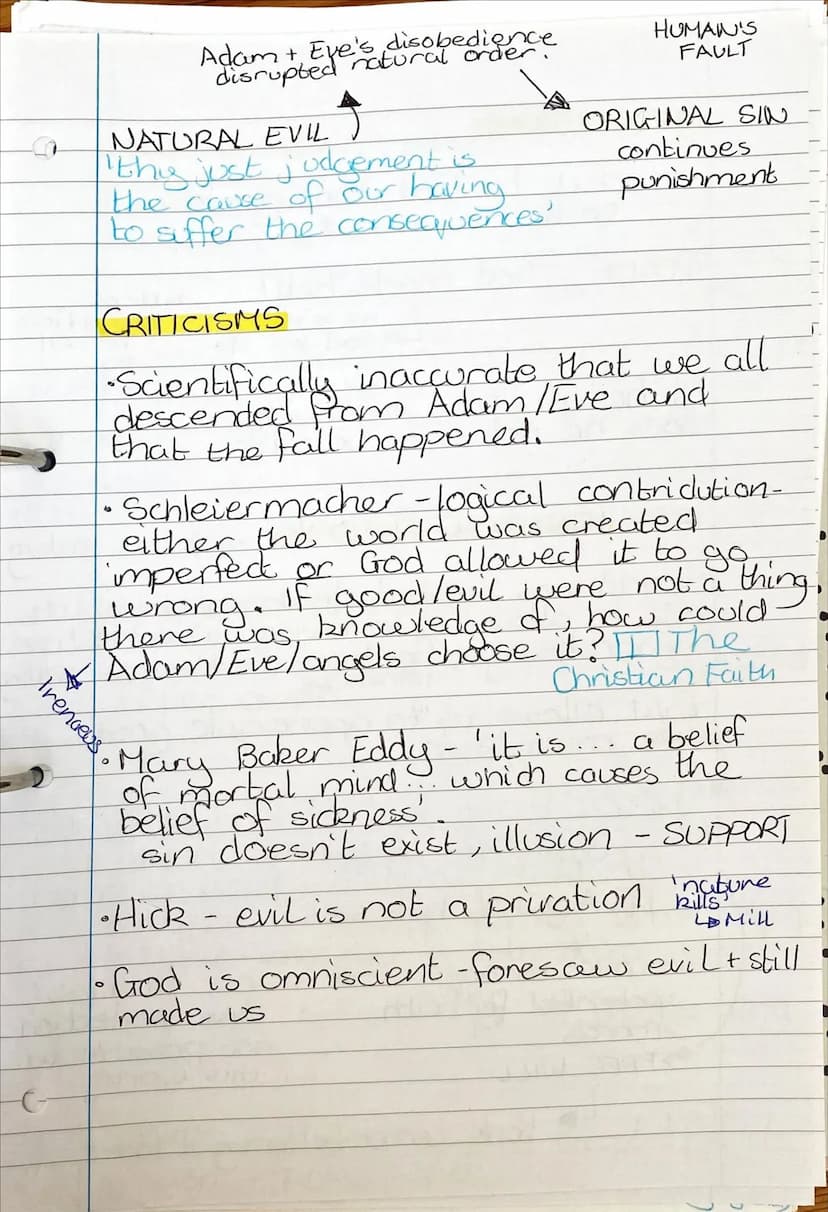 Adam + Eve's disobedience
disrupted natural order.
HUMAN'S
FAULT
NATURAL EVIL
'thy just judgement is
the cause of our having
to suffer the consequences'
ORIGINAL SIN
continues
punishment
CRITICISMS
•Scientifically inaccurate that we all
descended from Adam/Eve and
that the fall happened.
• Schleiermacher - logical contridution-
either the world was created
imperfect or God allowed it to go
wrong. If good/evil were not a thing
there was knowledge of, how could
Adam/Eve/angels choose it? The
Christian Faith
Irenaeus
•Mary Baker Eddy - 'it is... a belief
of mortal mind... which causes the
belief of sickness'.
sin doesn't exist, illusion - SUPPORT
•Hick - evil is not a privation
'nature
kills'
↳ Mill
•God is omniscient - foresaw evil + still
made us